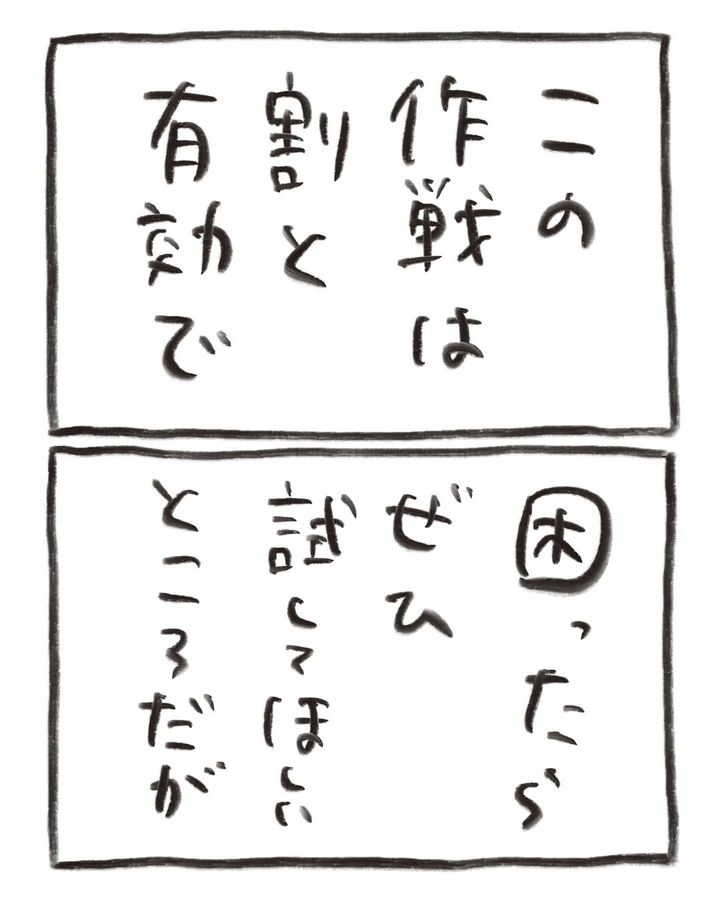 この
作戦は
割と
有効で
困ったら
ぜひ
試してほしい
ところだが